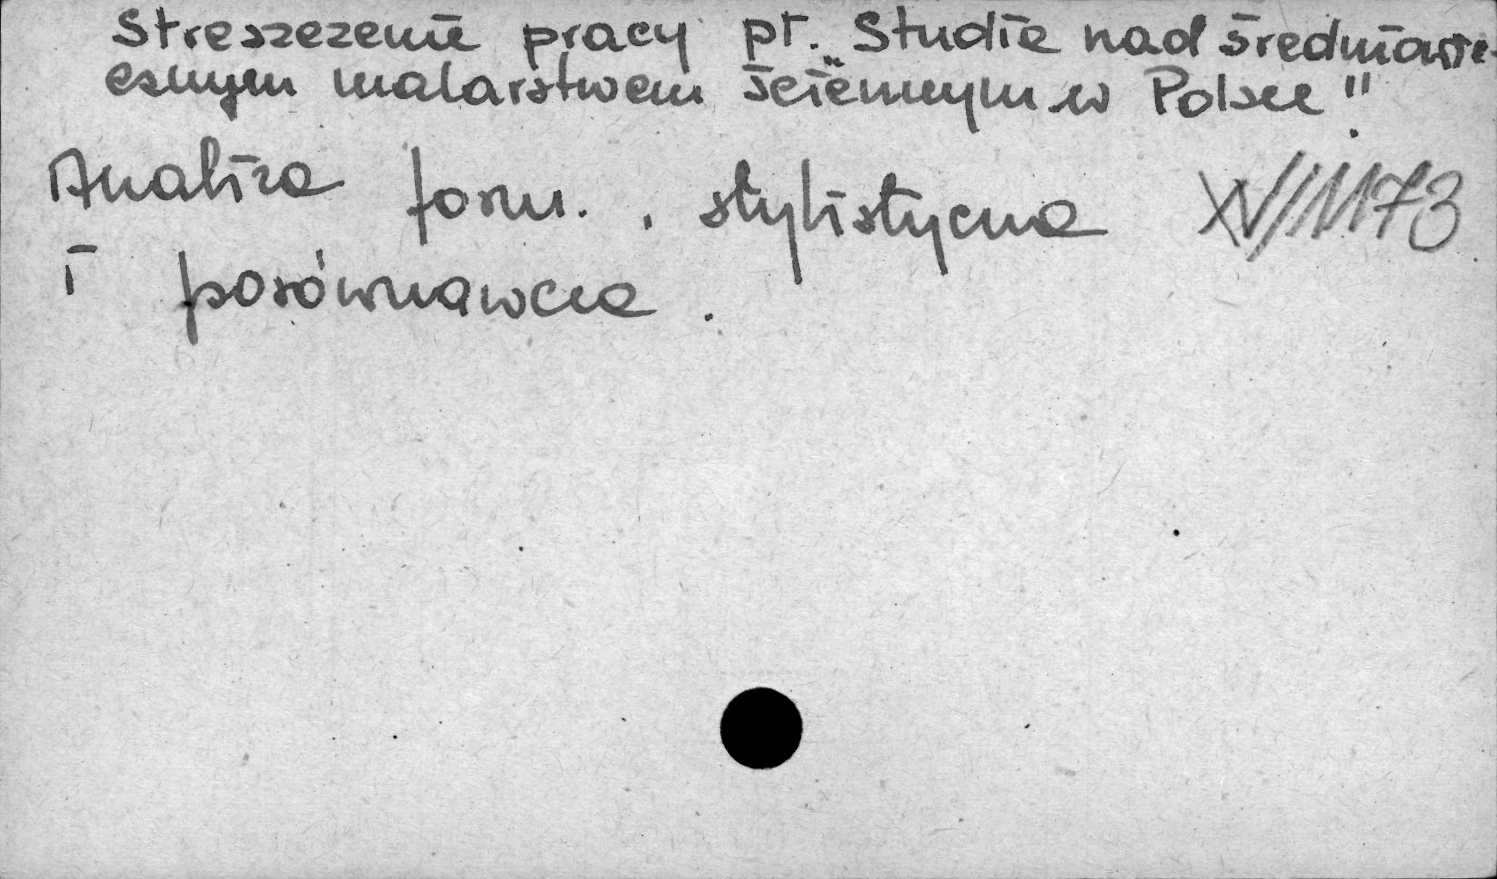 Streszczenie pracy pt. „Studia nad średniowie-
cznym malarstwem ściennym w Polsce"
Analiza form., stylistyczna XV/1173
i porównawcza.